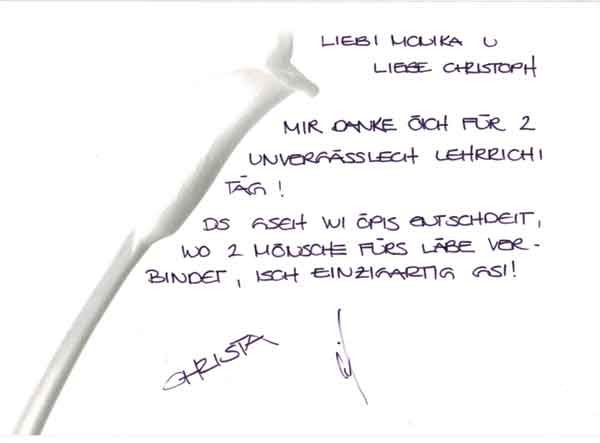 LIEBI MONIKA U
LIEBE CHRISTOPH
MIR DANKE ÖICH FÜR 2
UNVERGÄSSLECH LEHRRICHI
TÄG!
DS GSEH WI ÖPIS ENTSCHDEIT,
WO 2 MÖNSCHE FÜRS LÄBE VER-
BINDET, ISCH EINZIGARTIG GSI!
CHRISTA